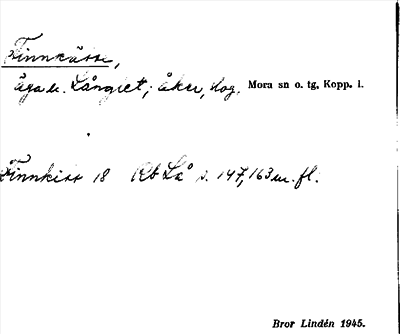 Finnkäss,
äga u. Långlet; åker, skog. Mora sn o. tg, Kopp. l.
Finnkiss 18 Rb Lå s. 147, 163 m. fl.
Bror Lindén 1945.